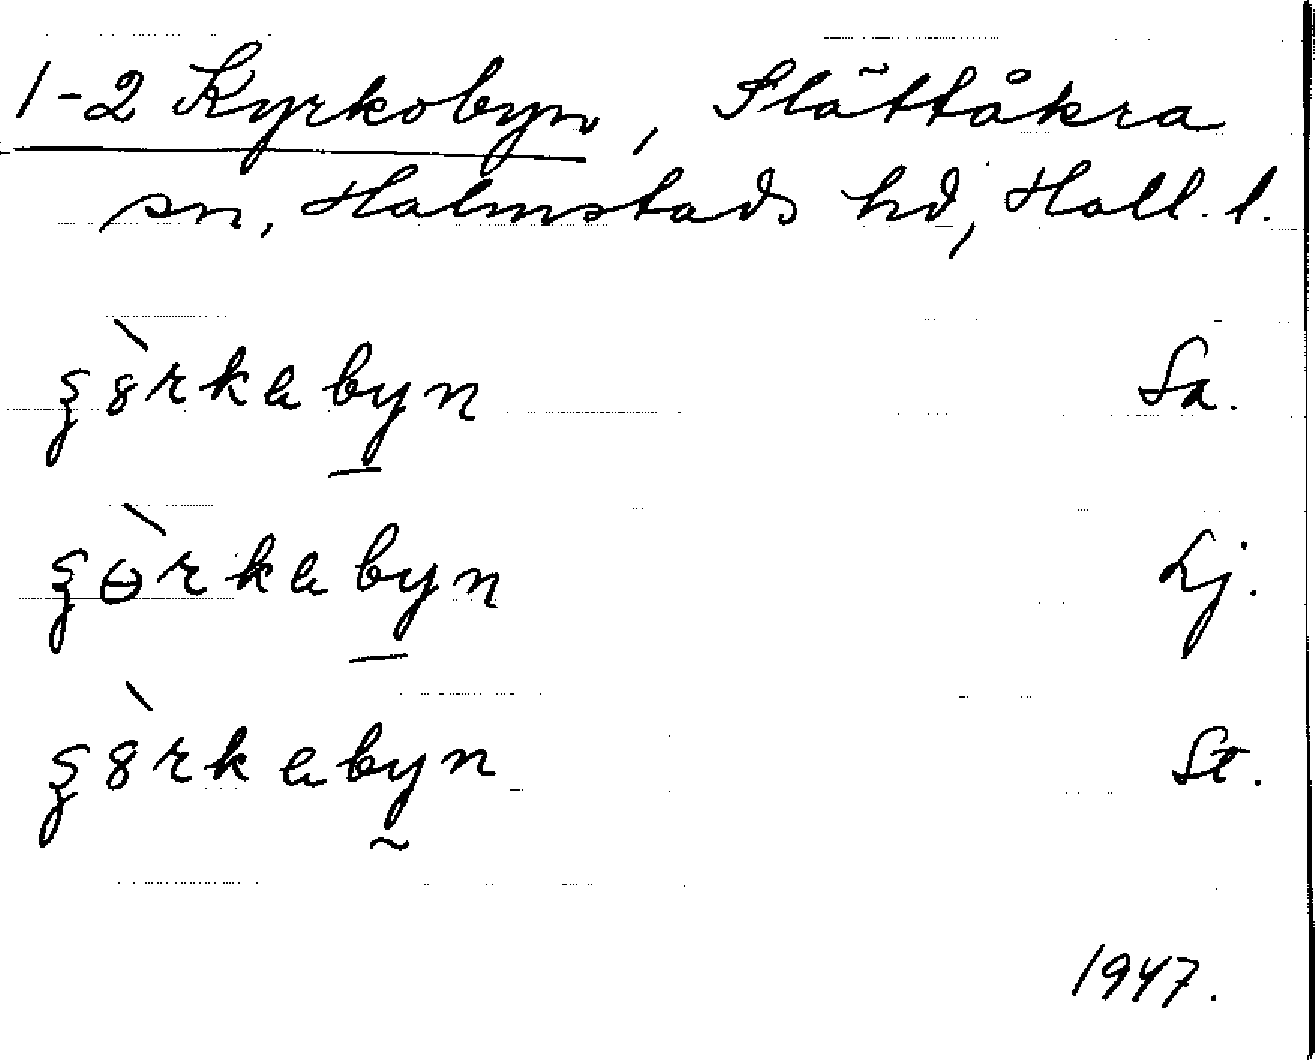 1-2 Kyrkobyn, Slättåkra
sn, Halmstads hd, Hall. l.
ʒ8̀rkabyn Sa.
ʒɵ̀rkabyn Lj.
ʒ8̀rkabyn St.
1947.